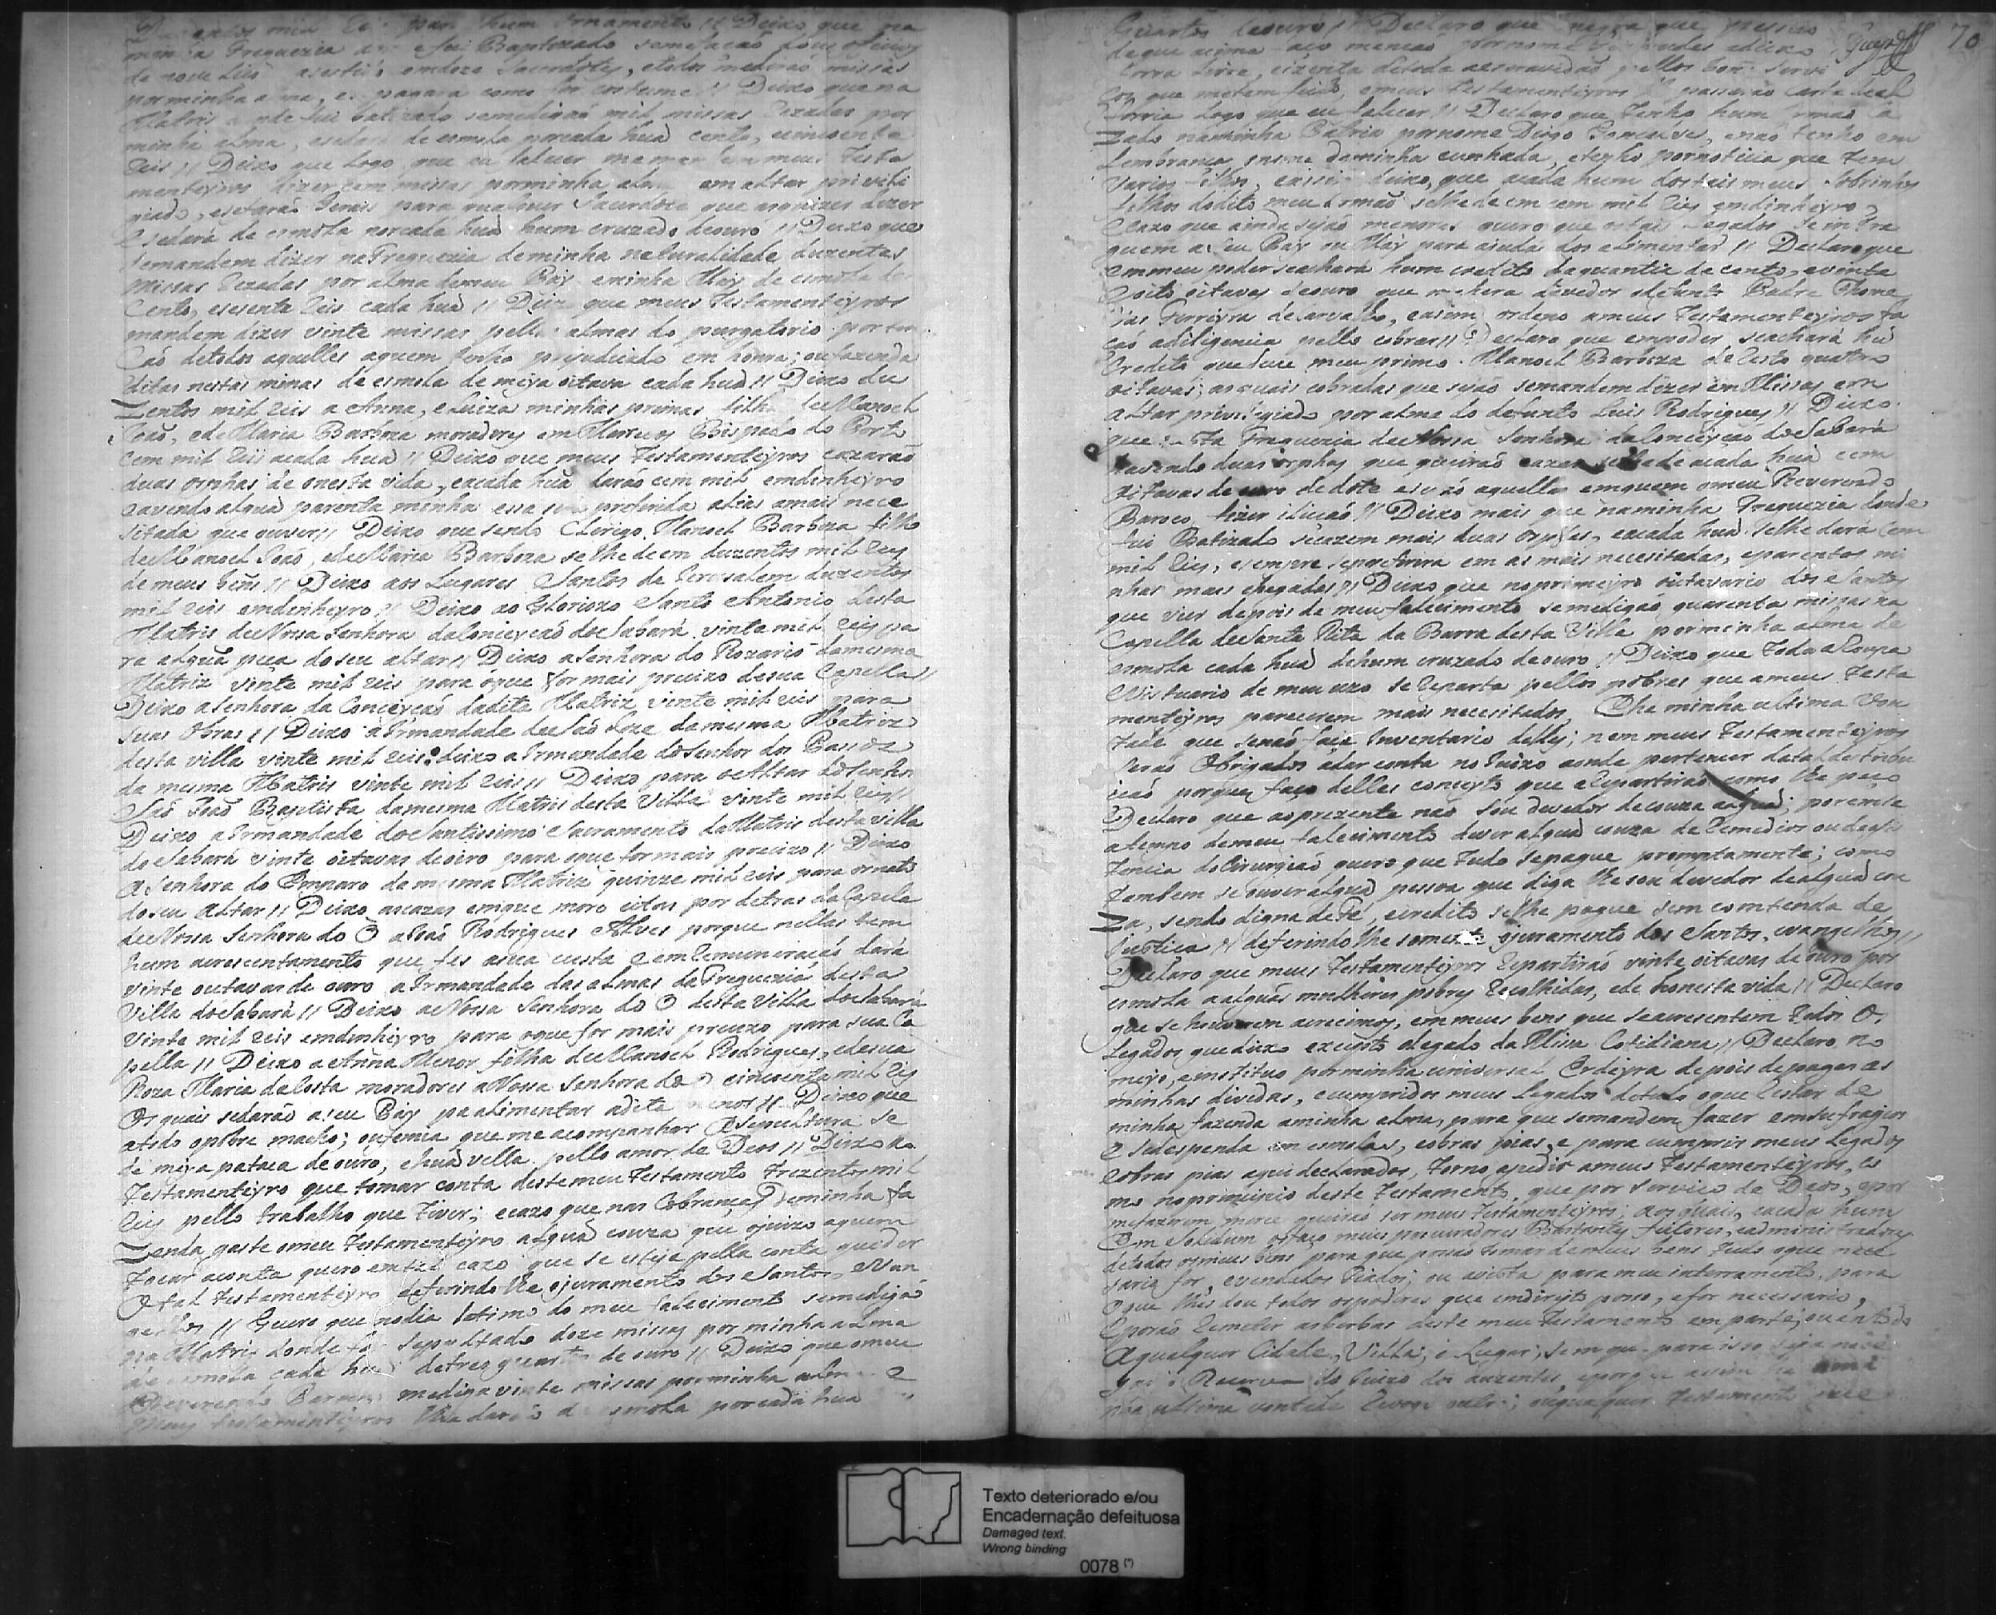 mil para hum ornamento // Deixo que na
minha Freguezia fui Baptizado semefação hum officio
de nove Liç asestido emdoze Sacerdotes, etodos medirão missas
porminha alma, e pagara como for costume // Deixo que na
Matris a pde fui batizado semedigaõ mil missas Rezadas por
minha alma, esedara de esmola porcada huã cento, ecincoenta
Reis // Deixo que Logo que eu falecer meman meus Testa
menteyros dizer cem missas porminha alma em altar privili
giado, esefaraõ gerais para qualquer Sacerdote que asquizer dizer
esedara de esmola porcada huã hum cruzado deouro // Deixo que
semandem dizer naFreguezia deminha naturalidade duzentas
missas Rezadas por alma demeu Pay eminha May de esmola de
Cento, esesenta Reis cada huã // Deixo que meus Testamenteyros
mandem dizer vinte missas pellas almas do purgatorio por ten
çaõ detodos aquelles aquem tenho prejudicado em honra; oufazenda
ditas nestas minas de esmola de meya oitava cada huã // Deixo du
zentos mil Reis a Anna, eLuiza minhas primas filhas deManoel
Joaõ, edeMaria Barboza moradores em Bispado do Porto
cem mil Reis acada huã // Deixo que meus Testamenteyros cazaraõ
duas orphas de onesta vida, eacada huã daraõ cem mil emdinheyro
eavendo alguã parenta minha essa seja preferida alias amais nece
sitada que ouver // Deixo que sendo Clerigo Manoel Barboza filho
deManoel Joaõ, edeMaria Barboza selhedeem duzentos mil Reis
de meus bens // Deixo aos Lugares Santos de Jerusalem duzentos
mil Reis emdinheyro // Deixo ao Gloriozo Santo Antonio desta
Matris deNossa Senhora daConceyçaõ doSabará vinte mil Reis pa
ra alguã peça doseu altar // Deixo aSenhora do Rozario damesma
Matriz vinte mil Reis para oque for mais precizo desua Capella //
Deixo aSenhora da Conceyçaõ dadita Matriz vinte mil reis para
suas obras // Deixo aIrmandade deSaõ Joze da mesma Matriz
desta villa vinte mil reis: deixo aIrmandade doSenhor dos Passos
da mesma Matris vinte mil Reis // Deixo para oAltar doSenhor
Saõ Joaõ Baptista damesma Matris desta Villa vinte mil Reis //
Deixo aIrmandade doSantissimo Sacramento daMatris desta villa
doSabará vinte oitavas deouro para oque for mais precizo // Deixo
ASenhora do Emparo da mesma Matriz quinze mil reis para ornato
doseu Altar // Deixo ascazas emque moro citas por detras da Capela
deNossa Senhora do Ó aBras Rodrigues Alves porque nellas tem
hum acrescentamento que fes asua custa e emRemuneraçaõ dará
vinte outavas de ouro aIrmandade das almas daFreguezia desta
Villa doSabará // Deixo aNossa Senhora do Ó desta Villa doSabará
vinte mil Reis emdinheyro para oque for mais precizo para sua Ca
pella // Deixo aAnna Menor filha deManoel Rodrigues, edesua
Roza Maria daCosta moradores aNossa Senhora do Ó cincoenta mil Reis
Os quais sedaraõ aseu Pay paalimentar adita menor // Deixo que
atodo opobre macho; oufemia que me acompanhar ASepultura se
dé meya pataca de ouro, ehuã vella pello amor de Deos // Deixo ao
Testamenteyro que tomar conta destemeu Testamento Trezentos mil
Reis pello trabalho que Tiver; ecazo que nas Cobranças deminha fa
zenda gaste omeu Testamenteyro alguã couza que ojuizo aquem
tocar aconta quero em tal cazo que se esteja pella conta que der
Otal Testamenteyro deferindo lhe ojuramento dos Santos Evan
gelhos // Quero que nodia setimo do meu falecimento semedigaõ
na Matris donde for sepultado doze missas por minha alma
de esmola cada huã detres quartos de ouro // Deixo que omeu
Reverendo medigavinte missas porminha alma e
meus testamenteyros lhe daraõ de esmola porcada huã
Quartos deouro // Declaro que negra que pessuo
deque acima faço mençaõ pornome edeixo
forra Livre, eizenta detoda aescravidaõ pellos bons servi
ços que metem feito, emeus testamenteyros lhe passaraõ Carta deal
forria Logo que eu falecer // Declaro que Tenho hum Irmaõ Ca
zado naminha Patria pornome Diogo Gonçalves, enaõ tenho em
Lembrança onome deminha cunhada, etenho pornoticia que tem
varios filhos, eassi deixo, que acada hum dostais meus Sobrinhos
filhos dodito meu Irmaõ selhedeem cem mil Reis emdinheyro
ecazo que aindasejaõ menores quero que estes Legados se intre
guem aseu Pay ou May para ajuda dos alimentar // Declaroque
emmeu poder seachara hum credito daquantia de cento, evinte
eoito oitavas deouro que mehera devedor odefunto Padre Thome
Ferreyra deCarvalho, easim ordeno ameus Testamenteyros fa
çaõ adiligencia pello cobrar // Declaro que emmeopoder seachará hũ
Credito quedeve meu primo Manoel Barboza deCento quatro
oitavas; asquais cobradas que sejaõ semandem dizer em Missas em
altar privilegiado por alma do defunto Luis Rodrigues // Deixo
que nesta Freguezia deNossa Senhora daConceyçaõ doSabará
havendo duas orphas que queiraõ cazar selhede acada huã cem
oitavas de ouro dedote eseraõ aquellas emquem omeu Reverendo
Paroco fizer eleicaõ // Deixo mais que naminha Freguezia donde
fui Batizado secazem mais duas orphas, eacada huã selhe dará Cem
mil Reis, esempre sepreferira em as mais necesitadas, eparentas mi
nhas mais chegadas // Deixo que noprimeyro outavario dos Santos
que vier depois de meu falecimento semedigaõ quarenta missas na
Capella deSanta Rita da Barra desta Villa porminha alma de
esmola cada huã dehum cruzado deouro // Deixo que Toda aRoupa
eVistuario de meu uzo seReparta pellos pobres que ameus Testa
menteyros parecerem mais necesitados. Ehe minha ultima Von
tade que senaõ faça Inventario delles; nem meus Testamenteyros
seraõ Obrigados adar conta noJuizo aonde pertencer datal destribu
icaõ porque faço delles conceyto que aRepartiraõ como lhe peço
Declaro que aoprezente naõ sou devedor decouza alguã; poremse
atempo demeu falecimento dever alguã couza de Remedios oudeasis
Tencia doCirurgiaõ quero que tudo sepague promptamente; como
tambem seouver alguã pessoa que diga lhe sou devedor dealguã cou
za, sendo digna defe, ecredito selhe pague sem contenda de
Justiça // deferindolhe somente ojuramento dos Santos, evangelhos //
Declaro que meus Testamenteyros Repartiraõ vinte oitavas de ouro por
esmola aalguãs mulheres pobres Recolhidas, ede honesta vida // Declaro
que sehouverem acrecimos, emmeus bens que seacresentem Todos Os
Legados quedeixo excepto olegado da Missa Cotidiana // Declaro no
meyo, einstituo porminha universal Erdeyra depois depagas as
minhas dividas, ecumpridos meus Legados detudo oque Restar de
minha fazenda aminha alma, para que semandem fazer emsufragios
e sedespenda em esmolas, eobras pias, e para cumprir meus Legados
eobras pias aqui declarados, torno apedir ameus Testamenteyros, co
mo noprincipio deste Testamento, que por servico de Deos, epor
mefazerem merce queiraõ ser meus Testamenteyros; aosquais, eacada hum
Em Solidum ofaço meus procuradores Bastantes feitores, eadministradores
detodos osmeus bens para que possaõ tomar demeus bens tudo oque nece
sario for, evendelos fiados; ou avista para meu interramento, para
oque lhes dou todos ospoderes que emdireyto posso, efor necessario,
Eporaõ Remeter asverbas deste meu Testamento em parte; ouentodo
Aqualquer Cidade, Villa; e Lugar; sem que para isso seja nece
Reserva do Juizo dos auzentes, eporque asim he minha
ultima vontade Revogo outro; ouqualquer Testamento
70
Texto deteriorado e/ou
Encadernação defeituosa
Damaged text.
Wrong binding
0078 (*)